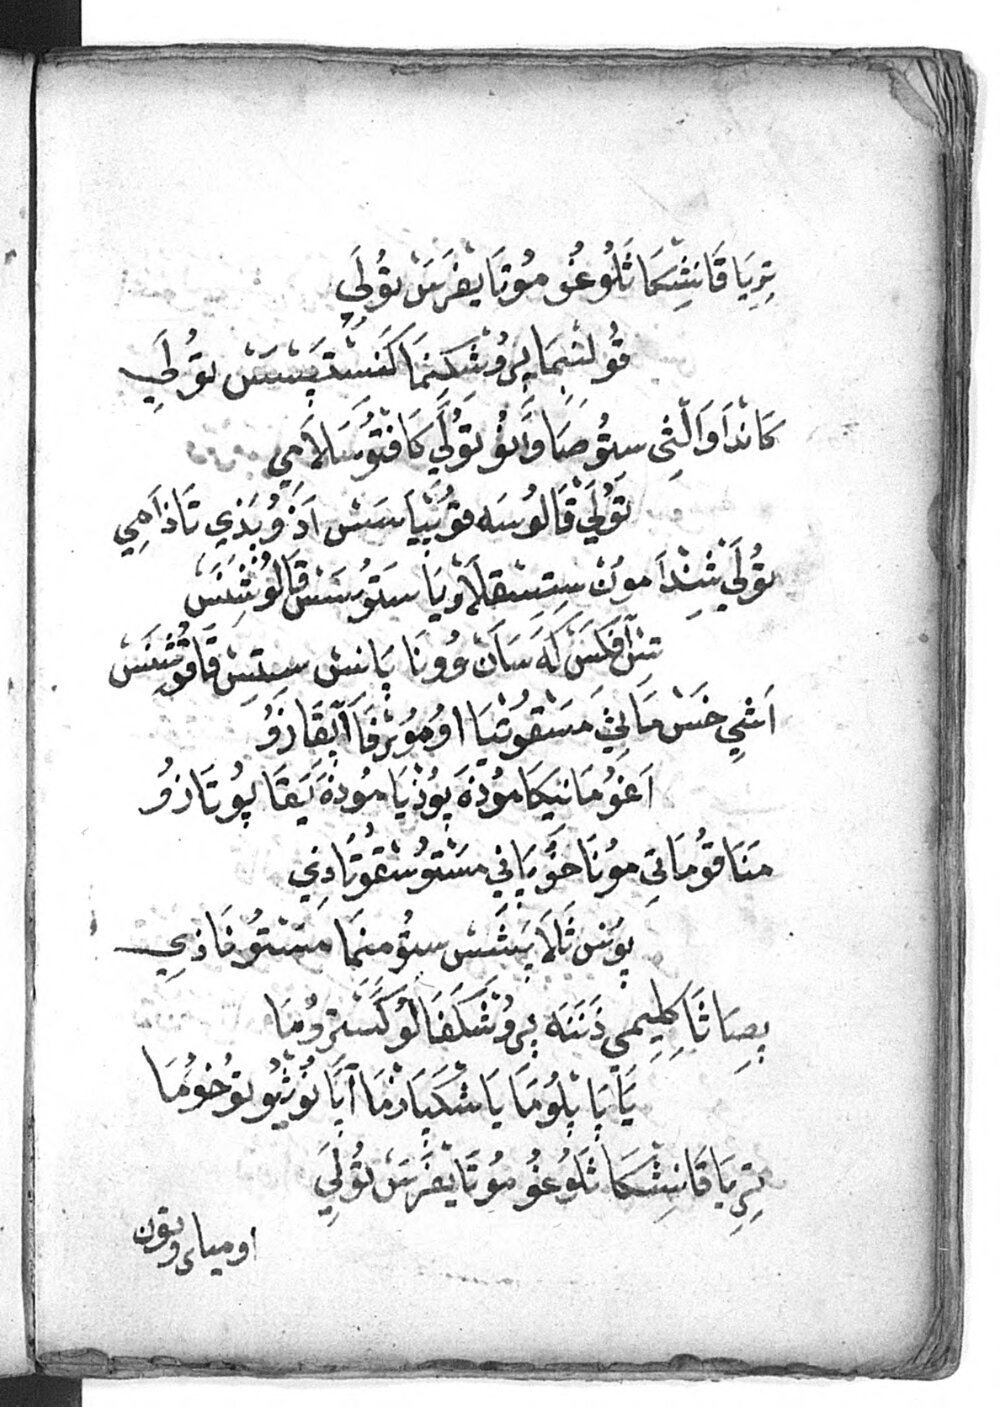 تِرِيَا قَانِشِكَمَا ثَلُوغُو مُوتَا يِفَرَسَ تُولَيِ
قُولِشِمَا پِرُوشَكِنِمَا كَنَسْتِپِسَسَ تُولَيِ
كَانْدَا وَالَثِي سِتُو صَاوَانُو تُولَيِ كَافَتُو سَلَامِي
تُولَيِ قَالُوسَه قُوپِيَاسَسَ اَذَرُوبَذِي تَاذَامِي
تُولَيِ شِنْدَا مُونَ سِتِسِقِلَاوِيَا سَتُورِسَسَ قَالُوشِنَسَ
تِسَافِكَسَ كَه سَانَ وُونَا پَانِسَ سِتِسَ قَاقُوشِنَسَ
اَشِي خَسَ مَالِثِي مَسْقُوتِيَا اُومُورْفَا آيِقَازُو
اَغُو مَانِيكَا مُوذَه پُوذِيَا مُوذَه يَقَا پُوتَازُو
مَنَاقُو مَاتِي مُونَا خُو يَانِي مَسْتُوسْقُوتَاذِي
پُوسَ ثَالَا پَشَسَ سِتُو مِنِمَا مَسَتُو فَاذِي
پِصَاثَا كَلِيمِي ذَنَنَه پِرُوشَكَفَالُو كَسْتِرُومَا
يَا پَا پِلُومَا يَا شِكَپَازْمَا آيَا تُوثِيُو تُوخُومَا
تِرِيَا قَانِشِكَمَا ثَلُوغُو مُوتَا يِفَرَسَ تُولَيِ